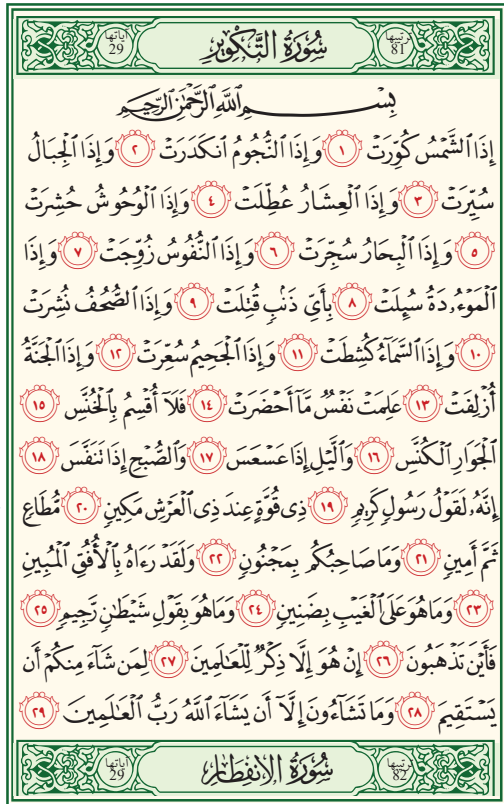 ترتيبها 81 سُورَةُ التَّكْوِيرِ آياتها 29
بِسْمِ اللَّهِ الرَّحْمَٰنِ الرَّحِيمِ
إِذَا ٱلشَّمْسُ كُوِّرَتْ ١ وَإِذَا ٱلنُّجُومُ ٱنكَدَرَتْ ٢ وَإِذَا ٱلْجِبَالُ
سُيِّرَتْ ٣ وَإِذَا ٱلْعِشَارُ عُطِّلَتْ ٤ وَإِذَا ٱلْوُحُوشُ حُشِرَتْ
٥ وَإِذَا ٱلْبِحَارُ سُجِّرَتْ ٦ وَإِذَا ٱلنُّفُوسُ زُوِّجَتْ ٧ وَإِذَا
ٱلْمَوْءُۥدَةُ سُئِلَتْ ٨ بِأَىِّ ذَنۢبٍ قُتِلَتْ ٩ وَإِذَا ٱلصُّحُفُ نُشِرَتْ
١٠ وَإِذَا ٱلسَّمَآءُ كُشِطَتْ ١١ وَإِذَا ٱلْجَحِيمُ سُعِّرَتْ ١٢ وَإِذَا ٱلْجَنَّةُ
أُزْلِفَتْ ١٣ عَلِمَتْ نَفْسٌ مَّآ أَحْضَرَتْ ١٤ فَلَآ أُقْسِمُ بِٱلْخُنَّسِ ١٥
ٱلْجَوَارِ ٱلْكُنَّسِ ١٦ وَٱلَّيْلِ إِذَا عَسْعَسَ ١٧ وَٱلصُّبْحِ إِذَا تَنَفَّسَ ١٨
إِنَّهُۥ لَقَوْلُ رَسُولٍ كَرِيمٍ ١٩ ذِى قُوَّةٍ عِندَ ذِى ٱلْعَرْشِ مَكِينٍ ٢٠ مُّطَاعٍ
ثَمَّ أَمِينٍ ٢١ وَمَا صَاحِبُكُم بِمَجْنُونٍ ٢٢ وَلَقَدْ رَءَاهُ بِٱلْأُفُقِ ٱلْمُبِينِ
٢٣ وَمَا هُوَ عَلَى ٱلْغَيْبِ بِضَنِينٍ ٢٤ وَمَا هُوَ بِقَوْلِ شَيْطَٰنٍ رَّجِيمٍ ٢٥
فَأَيْنَ تَذْهَبُونَ ٢٦ إِنْ هُوَ إِلَّا ذِكْرٌ لِّلْعَٰلَمِينَ ٢٧ لِمَن شَآءَ مِنكُمْ أَن
يَسْتَقِيمَ ٢٨ وَمَا تَشَآءُونَ إِلَّآ أَن يَشَآءَ ٱللَّهُ رَبُّ ٱلْعَٰلَمِينَ ٢٩
ترتيبها 82 سُورَةُ الانفِطَارِ آياتها 29